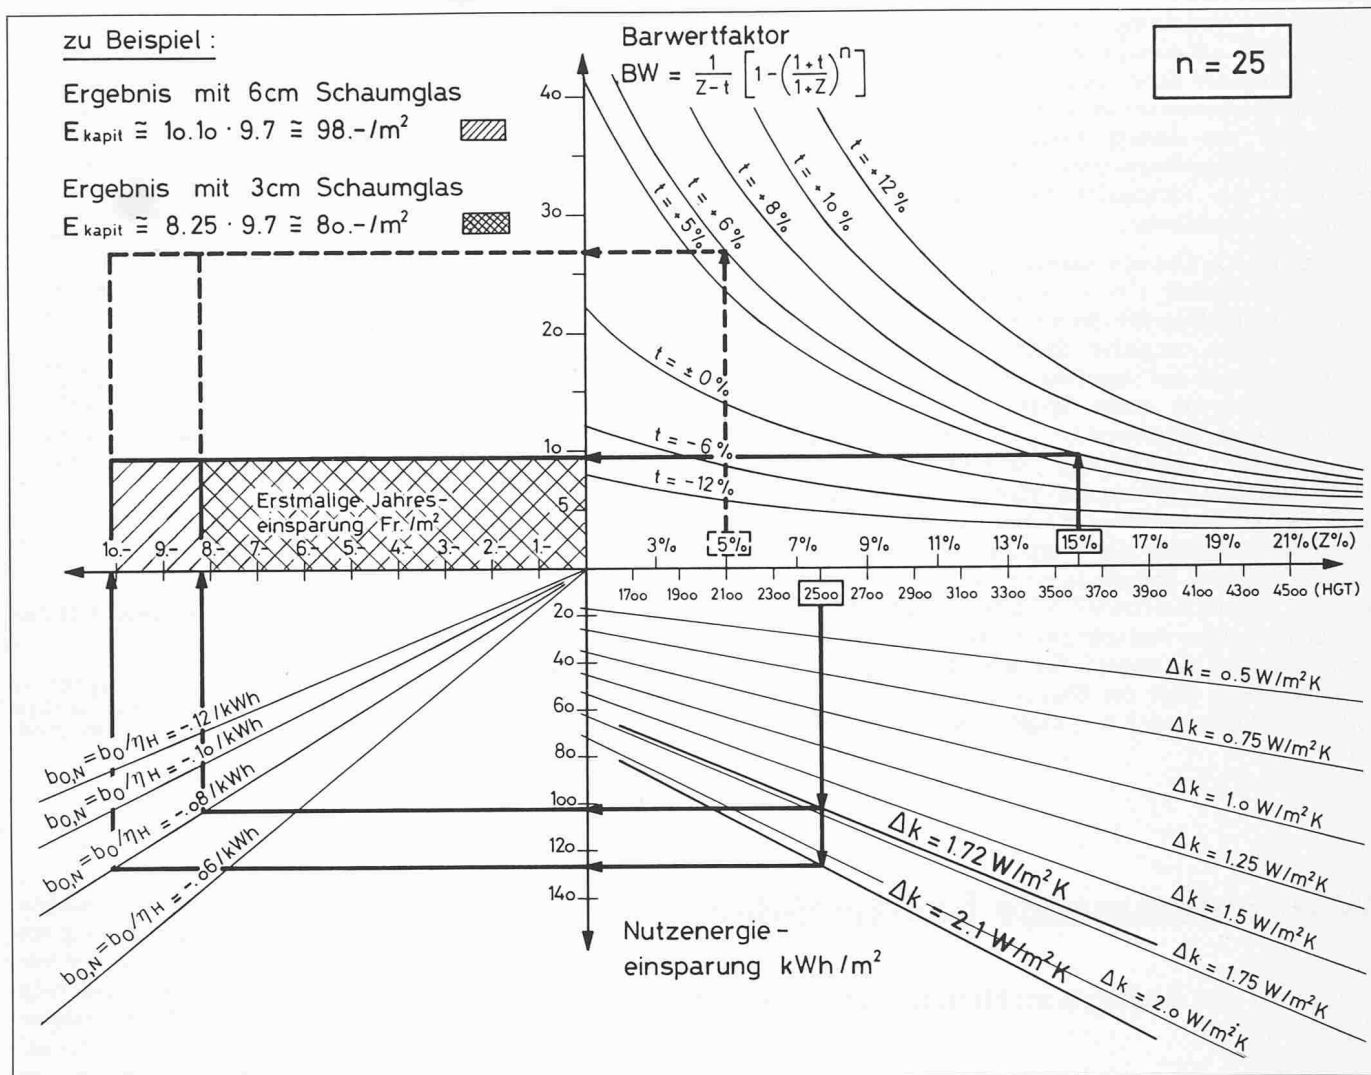 zu Beispiel :
Ergebnis mit 6cm Schaumglas
E kapit ≅ 1o.1o · 9.7 ≅ 98.-/m²
Ergebnis mit 3cm Schaumglas
E kapit ≅ 8.25 · 9.7 ≅ 8o.-/m²
Barwertfaktor
BW = 1/(Z-t) [1-((1+t)/(1+Z))^n]
n = 25
4o
3o
2o
1o
5
t = +5%
t = +6%
t = +8%
t = +1o%
t = +12%
t = ±0%
t = -6%
t = -12%
Erstmalige Jahres-
einsparung Fr./m²
1o.- 9.- 8.- 7.- 6.- 5.- 4.- 3.- 2.- 1.-
3% 5% 7% 9% 11% 13% 15% 17% 19% 21% (Z%)
17oo 19oo 21oo 23oo 25oo 27oo 29oo 31oo 33oo 35oo 37oo 39oo 41oo 43oo 45oo (HGT)
2o
4o
6o
8o
1oo
12o
14o
b₀,N = b₀/ηH = -.12/kWh
b₀,N = b₀/ηH = -.1o/kWh
b₀,N = b₀/ηH = -.o8/kWh
b₀,N = b₀/ηH = -.o6/kWh
Δk = o.5 W/m²K
Δk = o.75 W/m²K
Δk = 1.o W/m²K
Δk = 1.25 W/m²K
Δk = 1.5 W/m²K
Δk = 1.72 W/m²K
Δk = 1.75 W/m²K
Δk = 2.1 W/m²K
Δk = 2.o W/m²K
Nutzenergie-
einsparung kWh/m²